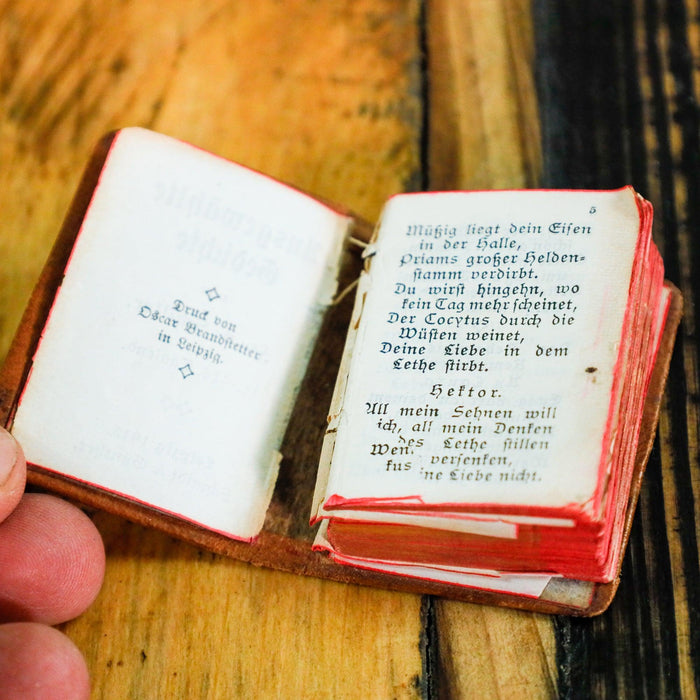 Druck von
Oscar Brandstetter
in Leipzig.
5
Müßig liegt dein Eisen
in der Halle,
Priams großer Helden-
stamm verdirbt.
Du wirst hingehn, wo
kein Tag mehr scheinet,
Der Cocytus durch die
Wüsten weinet,
Deine Liebe in dem
Lethe stirbt.
Hektor.
All mein Sehnen will
ich, all mein Denken
des Lethe stillen
kus versenken,
ne Liebe nicht.